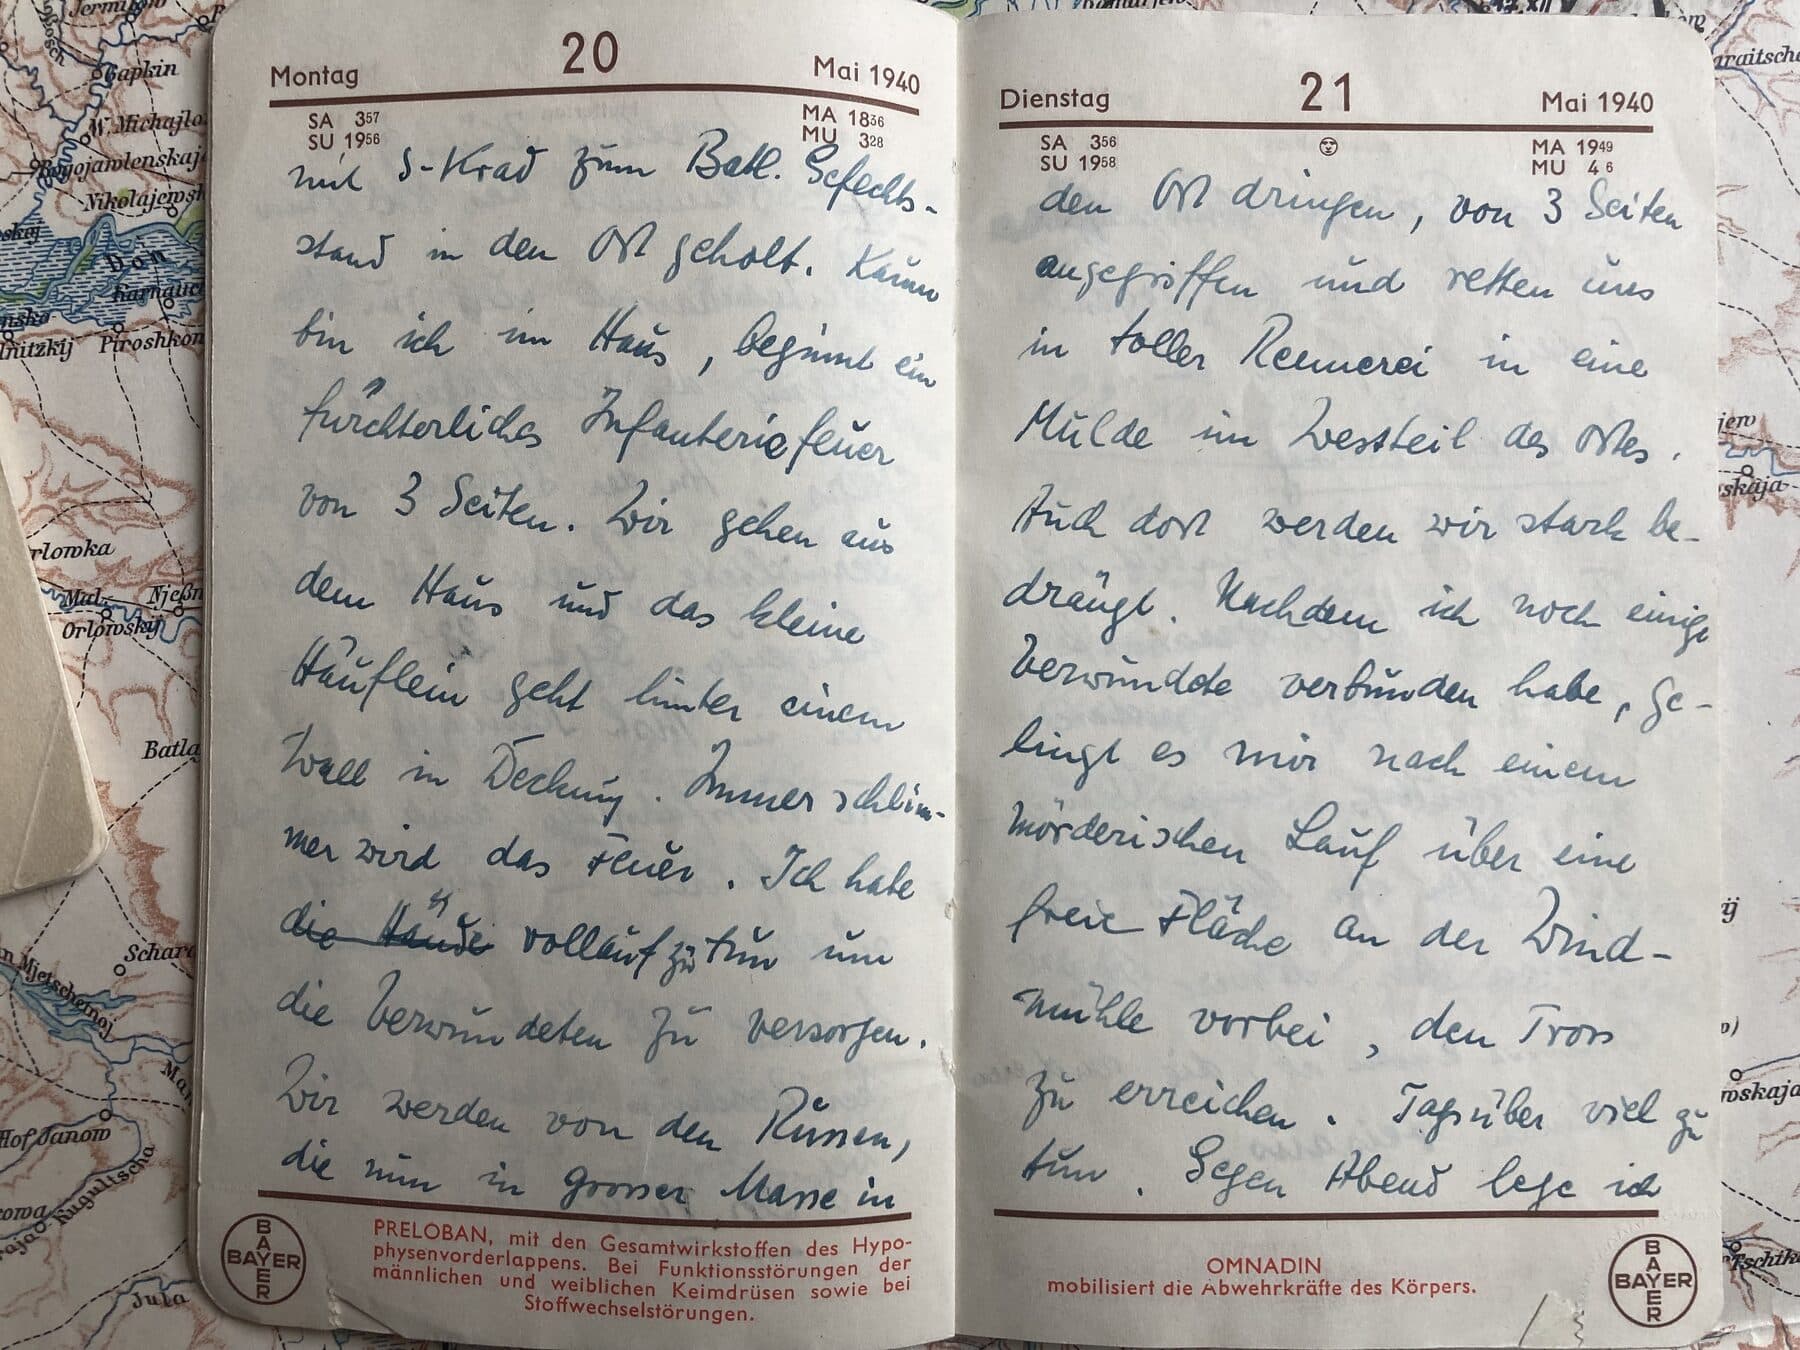 Montag 20 Mai 1940
SA 3⁵⁷ MA 18³⁶
SU 19⁵⁶ MU 3²⁸
mit S-Krad zum Batl. Gefechts-
stand in den Ort geholt. Kaum
bin ich im Haus, beginnt ein
fürchterliches Infanteriefeuer
von 3 Seiten. Wir gehen aus
dem Haus und das kleine
Häuflein geht hinter einem
Wall in Deckung. Immer schlim-
mer wird das Feuer. Ich habe
die Hände vollauf zu tun um
die Verwundeten zu versorgen.
Wir werden von den Russen,
die nun in grosser Masse in
BAYER
BAYER
PRELOBAN, mit den Gesamtwirkstoffen des Hypo-
physenvorderlappens. Bei Funktionsstörungen der
männlichen und weiblichen Keimdrüsen sowie bei
Stoffwechselstörungen.
Dienstag 21 Mai 1940
SA 3⁵⁶ MA 19⁴⁹
SU 19⁵⁸ MU 4⁶
den Ort dringen, von 3 Seiten
angegriffen und retten uns
in toller Rennerei in eine
Mulde im Westteil des Ortes.
Auch dort werden wir stark be-
drängt. Nachdem ich noch einige
Verwundete verbunden habe, ge-
lingt es mir nach einem
mörderischen Lauf über eine
freie Fläche an der Wind-
mühle vorbei, den Tross
zu erreichen. Tagsüber viel zu
tun. Gegen Abend lege ich
OMNADIN
mobilisiert die Abwehrkräfte des Körpers.
BAYER
BAYER
Gapkin
W. Michajlo
Nikolajewsk
Don
Karnauch
Piroshkon
rlowka
Mal.
Orlowskij
Njeßn
Batla
Schar
Mjetschetnoj
Hof Janow
Kugulischa
Jula
jew
skaja
ij
woskaja
Tschik